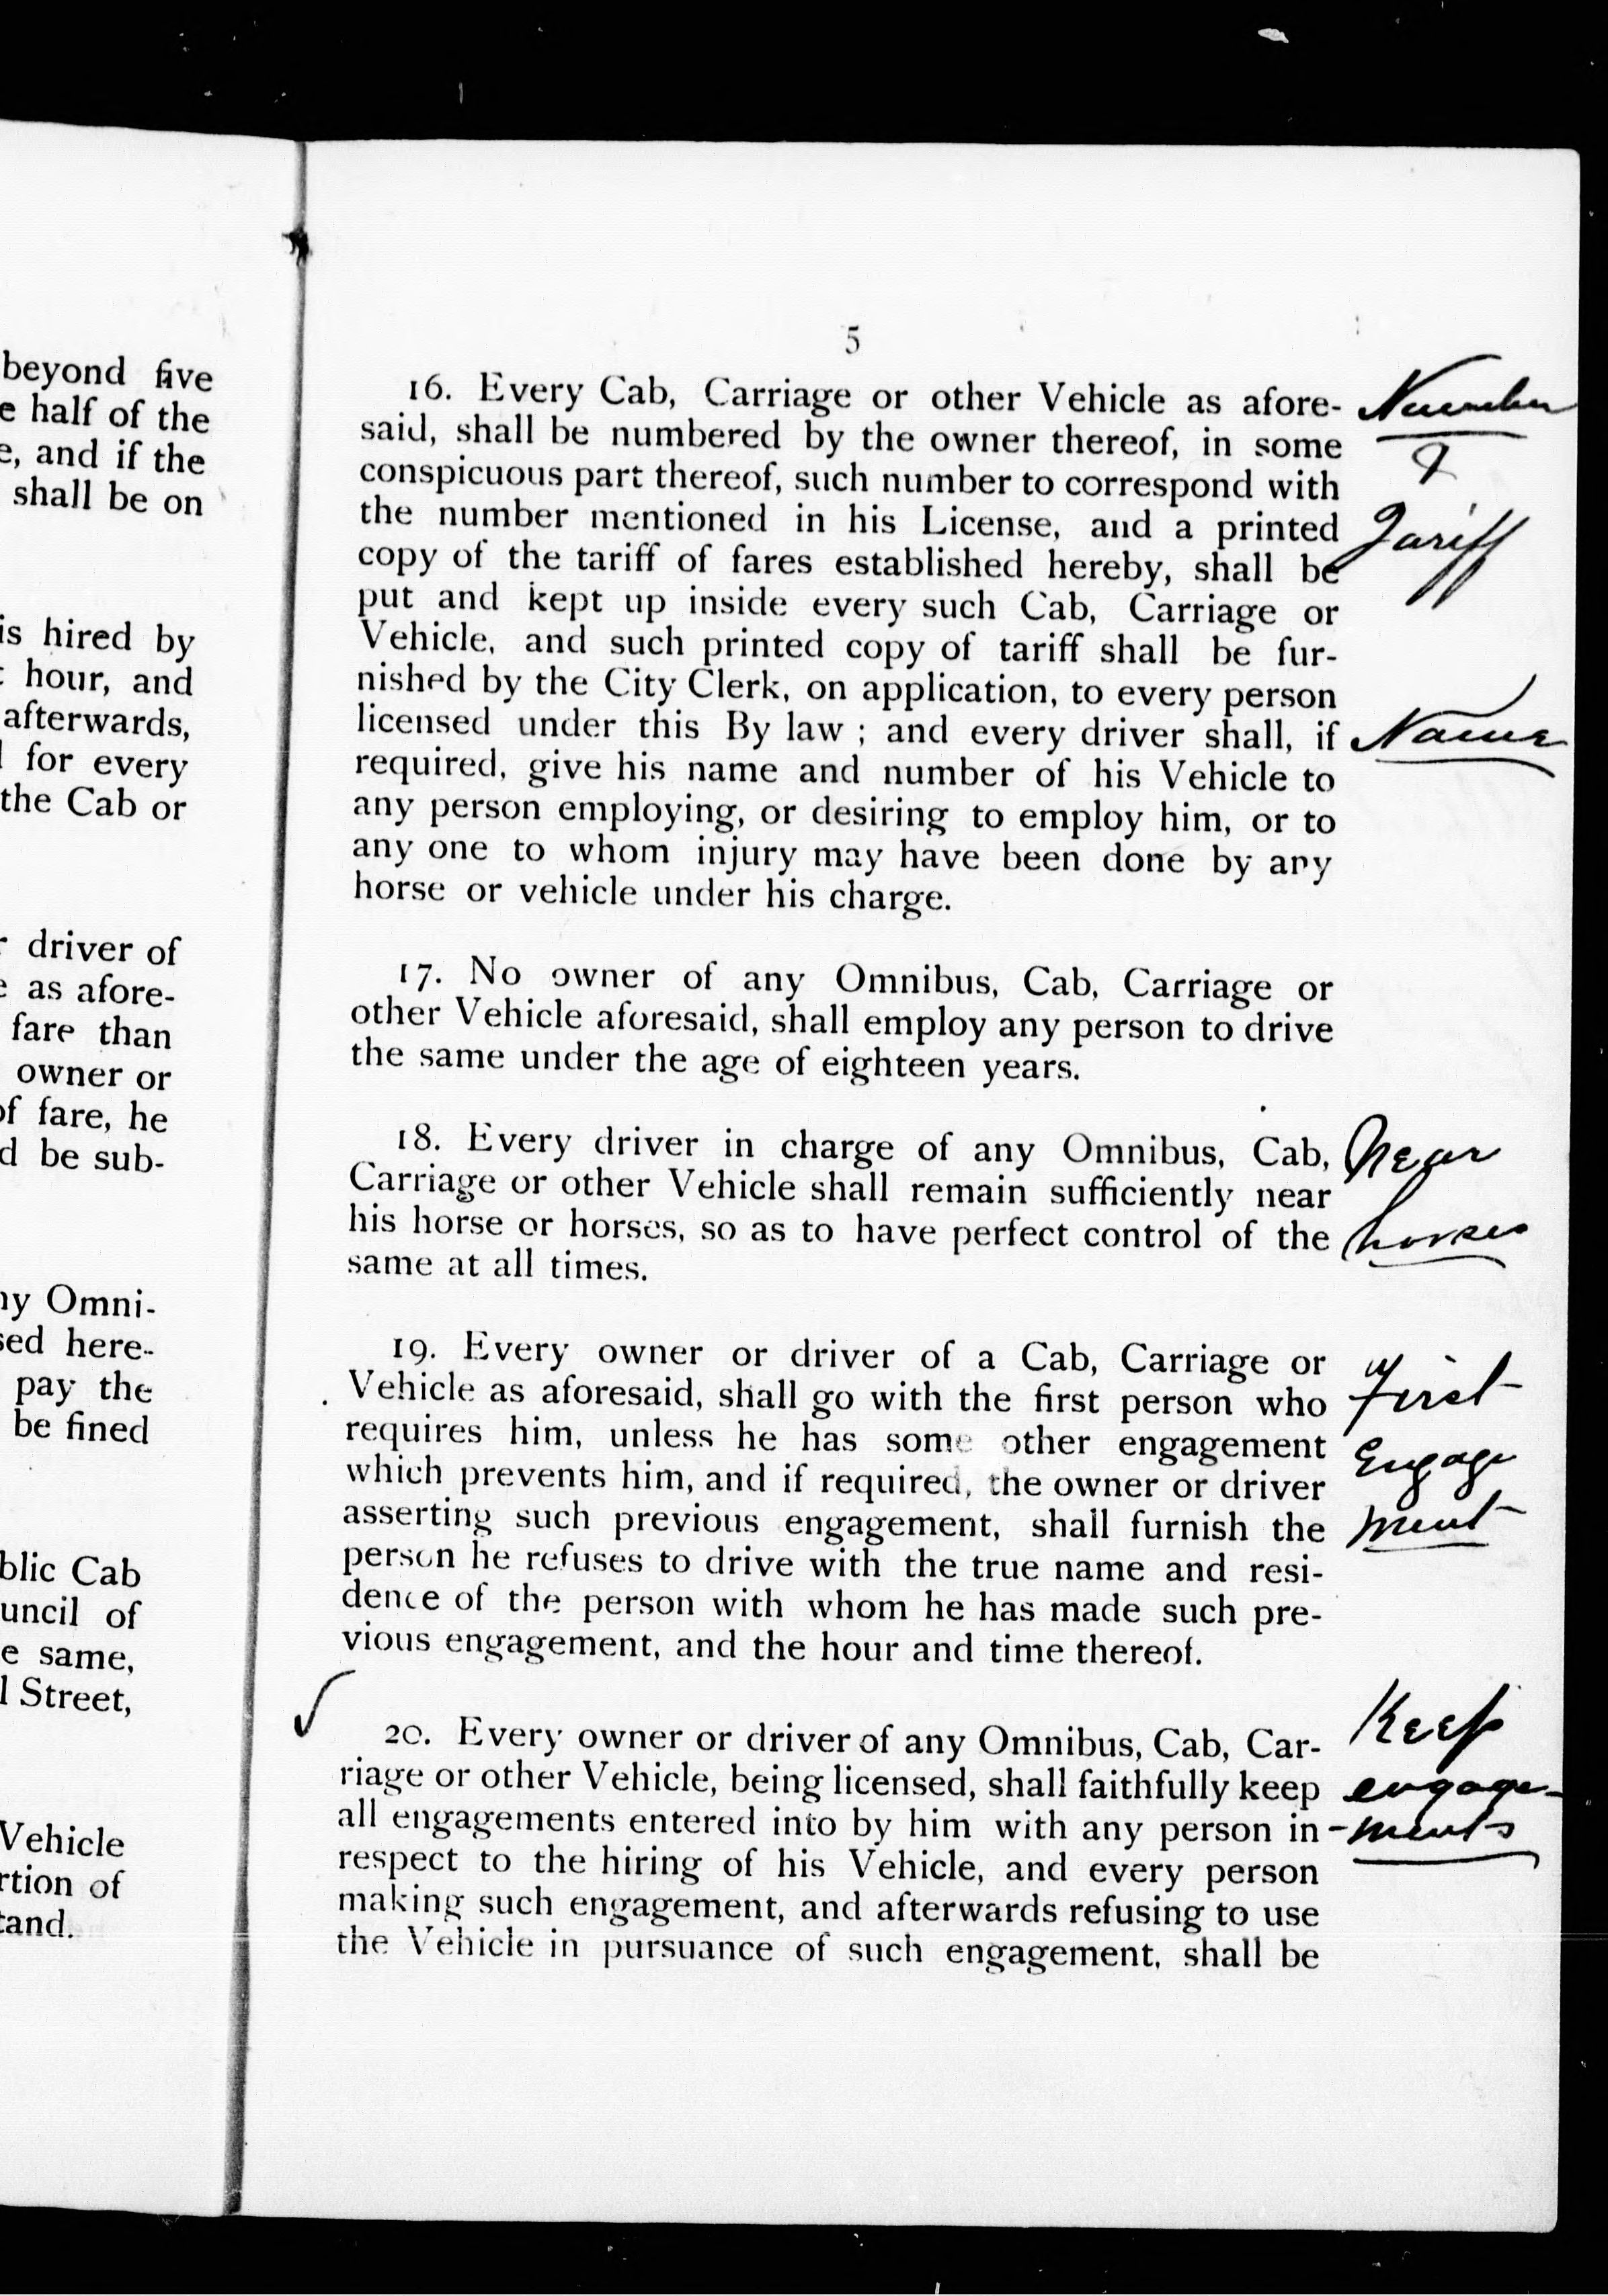 beyond five
e half of the
e, and if the
shall be on
is hired by
hour, and
afterwards,
for every
the Cab or
driver of
as afore-
fare than
owner or
of fare, he
d be sub-
ny Omni-
sed here-
pay the
be fined
blic Cab
uncil of
e same,
l Street,
Vehicle
rtion of
tand.
5
16. Every Cab, Carriage or other Vehicle as afore-
said, shall be numbered by the owner thereof, in some
conspicuous part thereof, such number to correspond with
the number mentioned in his License, and a printed
copy of the tariff of fares established hereby, shall be
put and kept up inside every such Cab, Carriage or
Vehicle, and such printed copy of tariff shall be fur-
nished by the City Clerk, on application, to every person
licensed under this By law ; and every driver shall, if
required, give his name and number of his Vehicle to
any person employing, or desiring to employ him, or to
any one to whom injury may have been done by any
horse or vehicle under his charge.
Number
&
Tariff
Name
17. No owner of any Omnibus, Cab, Carriage or
other Vehicle aforesaid, shall employ any person to drive
the same under the age of eighteen years.
18. Every driver in charge of any Omnibus, Cab,
Carriage or other Vehicle shall remain sufficiently near
his horse or horses, so as to have perfect control of the
same at all times.
Near
horses
19. Every owner or driver of a Cab, Carriage or
Vehicle as aforesaid, shall go with the first person who
requires him, unless he has some other engagement
which prevents him, and if required, the owner or driver
asserting such previous engagement, shall furnish the
person he refuses to drive with the true name and resi-
dence of the person with whom he has made such pre-
vious engagement, and the hour and time thereof.
First
Engage
ment
20. Every owner or driver of any Omnibus, Cab, Car-
riage or other Vehicle, being licensed, shall faithfully keep
all engagements entered into by him with any person in
respect to the hiring of his Vehicle, and every person
making such engagement, and afterwards refusing to use
the Vehicle in pursuance of such engagement, shall be
Keep
engage-
-ments